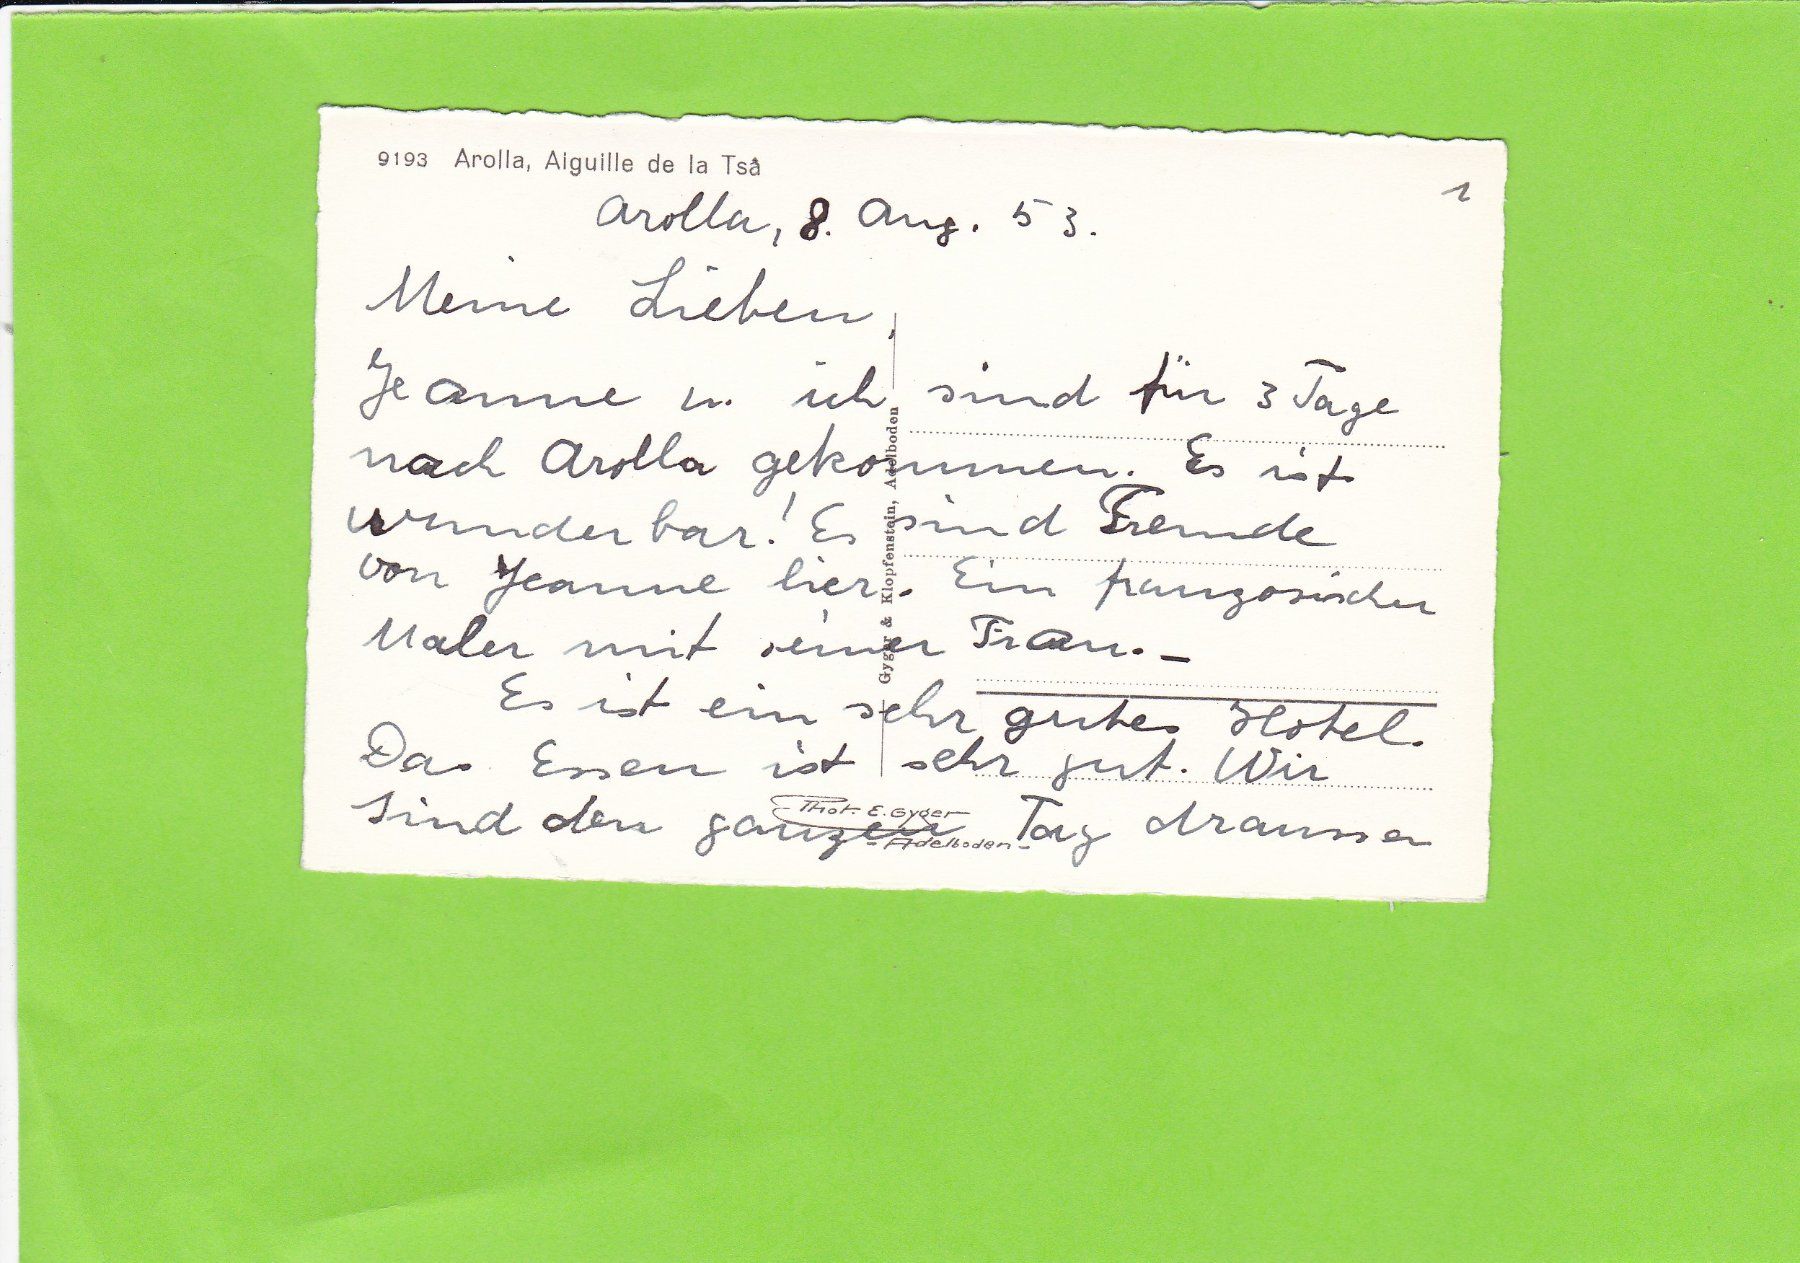 9193 Arolla, Aiguille de la Tsâ
1
Arolla, 8. Aug. 53.
Meine Lieben,
Jeanne u. ich sind für 3 Tage
nach Arolla gekommen. Es ist
wunderbar! Es sind Freunde
von Jeanne hier. Ein französischer
Maler mit seiner Frau. –
Es ist ein sehr gutes Hotel.
Das Essen ist sehr gut. Wir
sind den ganzen Tag draussen
Gyger & Klopfenstein, Adelboden
Phot. E. Gyger
- Adelboden -